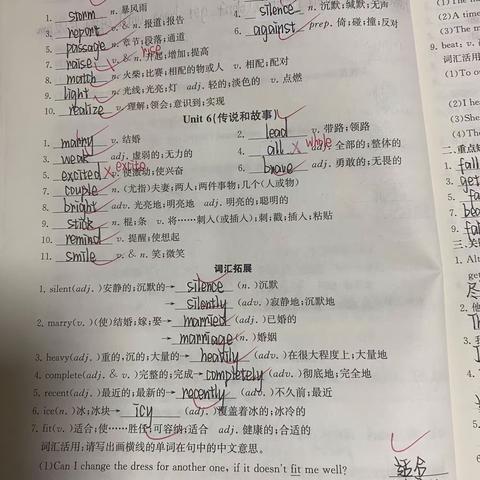 1. storm n. 暴风雨
4. silence n. 沉默;缄默;无声
3. report v. & n. 报道;报告
6. against prep. 倚;碰;撞;反对
5. passage n. 章节;段落;通道
7. raise rise v. & n. 升起;增加;提高
8. match n. 火柴;比赛;相配的物或人 v. 相配;般配
9. light n. 光线;光亮;灯 adj. 轻的;淡色的 v. 点燃
10. realize v. 理解;领会;意识到;实现
Unit 6(传说和故事)
1. marry v. 结婚
2. lead v. 带路;领路
3. weak adj. 虚弱的;无力的
4. all whole 全部的;整体的
5. excited excite v. 使激动;使兴奋
6. brave adj. 勇敢的;无畏的
7. couple n. (尤指)夫妻;两人;两件事物;几个(人或物)
8. bright adv. 光亮地;明亮地 adj. 明亮的;聪明的
9. stick n. 棍;条 v. 将……刺入(或插入);刺;戳;插入;粘贴
10. remind v. 提醒;使想起
11. smile v. & n. 笑;微笑
词汇拓展
1. silent(adj.)安静的;沉默的→ silence (n.)沉默
→ silently (adv.)寂静地;沉默地
2. marry(v.)(使)结婚;嫁;娶→ married (adj.)已婚的
→ marriage (n.)婚姻
3. heavy(adj.)重的;沉的;大量的→ heavily (adv.)在很大程度上;大量地
4. complete(adj. & v.)完整的;完成→ completely (adv.)彻底地;完全地
5. recent(adj.)最近的;最新的→ recently (adv.)不久前;最近
6. ice(n.)冰;冰块→ icy (adj.)覆盖着冰的;冰冷的
7. fit(v.)适合;使……胜任;可容纳;适合 adj. 健康的;合适的
词汇活用:请写出画横线的单词在句中的中文意思。
(1)Can I change the dress for another one, if it doesn't fit me well?
适合
(1)The
(2)A time
(3)The m
9. beat: v.
词汇活用
(1)To ou
(2)I hea
(3)She
(4)The
二.重点短
1. fall
3. get
5.
7. bea
9. fal
三.关
1. Alt
get
2. 他